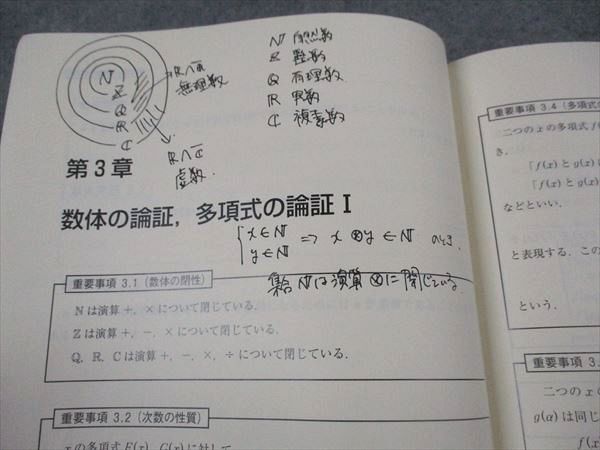 N
Z
Q
R
C
無理数
虚数.
N 自然数
Z 整数
Q 有理数
R 実数
C 複素数
第3章
数体の論証，多項式の論証 I
{x∈N
y∈N ⇒ x⊗y∈N のとき、
集合Nは演算⊗に閉じている.
重要事項 3.1（数体の閉性）
Nは演算 +，× について閉じている．
Zは演算 +，−，× について閉じている．
Q，R，Cは演算 +，−，×，÷ について閉じている．
重要事項 3.2（次数の性質）
xの多項式F(x)，G(x)に対して
重要事項 3.4（多項式の
二つのxの多項式 f(
き，
「f(x)とg(x)
「f(x)とg(x)
などといい，
と表現する．この
という．
重要事項 3.
二つのx
g(α)は同じ
f(x)